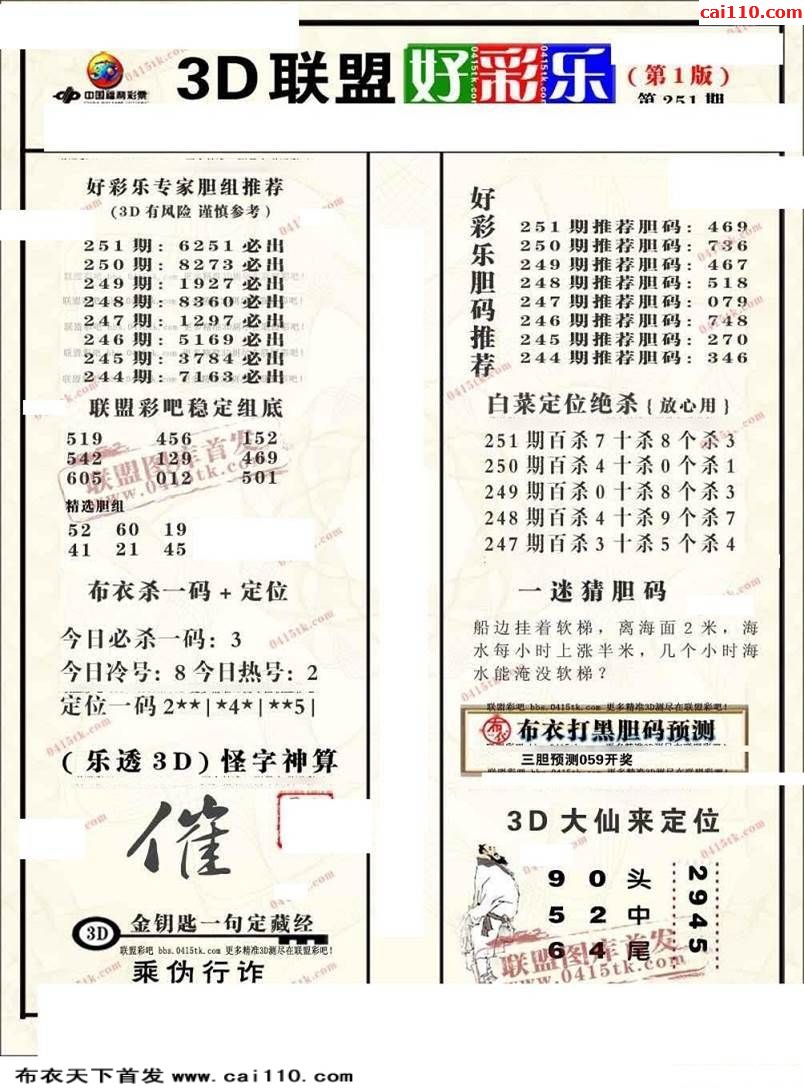 cai110.com
中国福利彩票
3D联盟好彩乐
(第1版)
第251期
好彩乐专家胆组推荐
(3D有风险 谨慎参考)
251期:6251必出
250期:8273必出
249期:1927必出
248期:8360必出
247期:1297必出
246期:5169必出
245期:3784必出
244期:7163必出
联盟彩吧稳定组底
519 456 152
542 129 469
605 012 501
联盟图库首发
www.0415tk.com
精选胆组
52 60 19
41 21 45
布衣杀一码+定位
今日必杀一码:3
今日冷号:8今日热号:2
定位一码2**|*4*|**5|
(乐透3D)怪字神算
催
3D
金钥匙一句定藏经
联盟彩吧 bbs.0415tk.com 更多精准3D测尽在联盟彩吧!
乘伪行诈
好彩乐胆码推荐
251期推荐胆码:469
250期推荐胆码:736
249期推荐胆码:467
248期推荐胆码:518
247期推荐胆码:079
246期推荐胆码:748
245期推荐胆码:270
244期推荐胆码:346
白菜定位绝杀{放心用}
251期百杀7十杀8个杀3
250期百杀4十杀0个杀1
249期百杀0十杀8个杀3
248期百杀4十杀9个杀7
247期百杀3十杀5个杀4
一迷猜胆码
船边挂着软梯,离海面2米,海
水每小时上涨半米,几个小时海
水能淹没软梯?
联盟彩吧 bbs.0415tk.com 更多精准3D测尽在联盟彩吧!
布衣打黑胆码预测
三胆预测059开奖
3D大仙来定位
9 0 头
5 2 中
6 4 尾
2945
联盟图库首发
www.0415tk.com
布衣天下首发 www.cai110.com